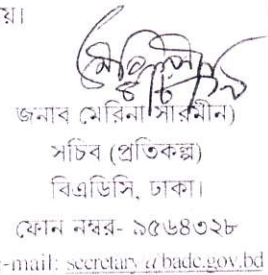 য়।
জনাব মেরিনা সারমীন)
সচিব (প্রতিকল্প)
বিএডিসি, ঢাকা।
ফোন নম্বর- ৯৫৬৪৩২৮
e-mail: secretary@badc.gov.bd